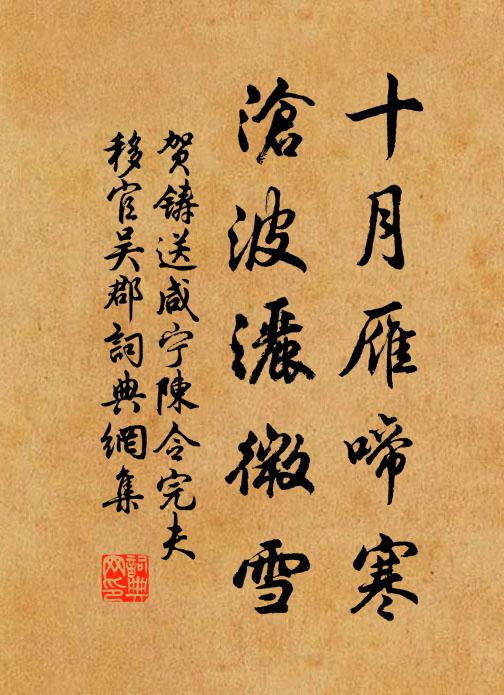 十月雁啼寒
滄波灑微雪
賀鑄送咸宁陳令完夫
移官吴郡詞典網集
詞典网印